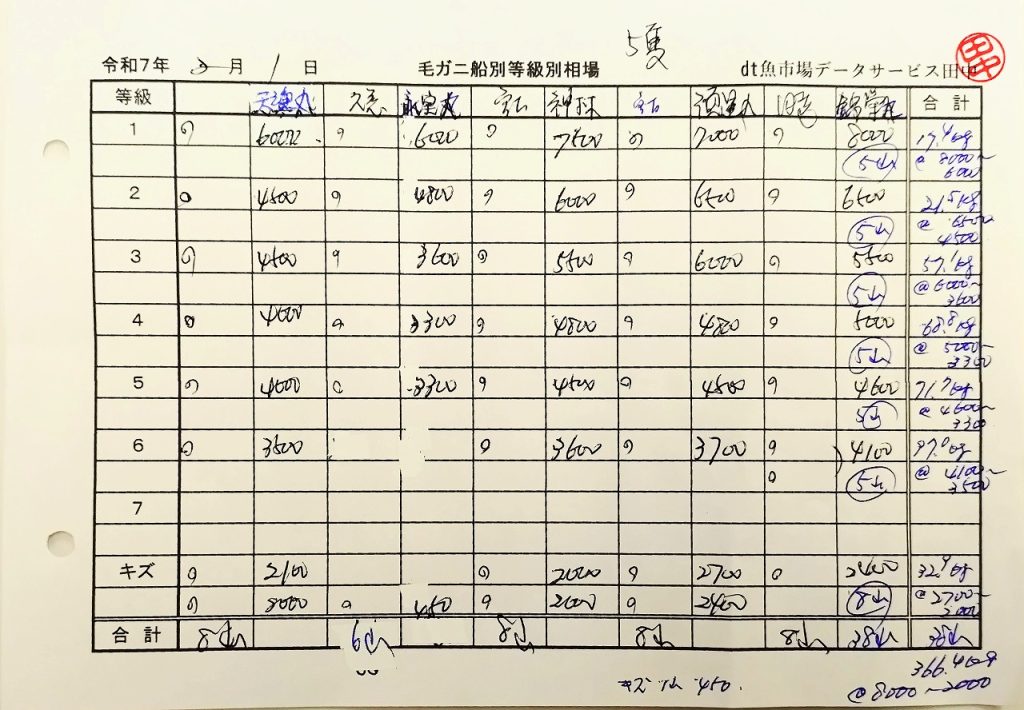 5隻
令和7年 3月 1日 毛ガニ船別等級別相場 dt魚市場データサービス田中
等級 永宝丸 合計
1 6000 6000 7500 7000 8000 17.4kg
5山 @ 8000~
6000
2 4500 4800 6000 6500 6500 21.5kg
5山 @ 6500~
4500
3 4500 3600 5500 6000 5500 57.1kg
5山 @ 6000~
3600
4 4000 3300 4800 4800 5000 68.8kg
5山 @ 5000~
3300
5 4000 3300 4500 4500 4600 71.7kg
5山 @ 4600~
3300
6 3500 3600 3700 4100 97.0kg
5山 @ 4100~
3500
7
キズ 2100 2000 2700 2400 32.9kg
450 2000 2400 8山 @ 2700~
2000
合計 8山 6山 8山 8山 8山 38山 38山
キズ 1山 450. 366.4kg
@8000~2000